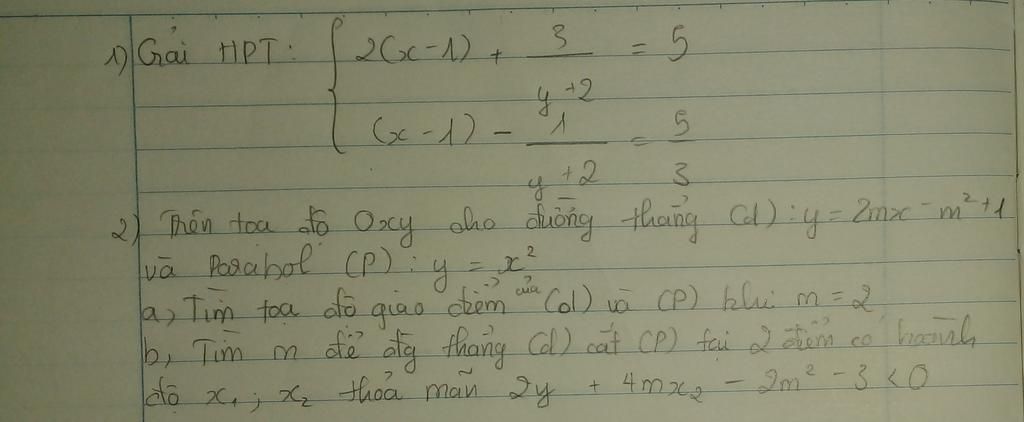 1) Giải HPT: { 2(x-1) + 3/(y+2) = 5
(x-1) - 1/(y+2) = 5/3
2) Trên tọa độ Oxy cho đường thẳng (d): y = 2mx - m² + 1
và Parabol (P): y = x²
a, Tìm tọa độ giao điểm của (d) và (P) khi m = 2
b, Tìm m để đg thẳng (d) cắt (P) tại 2 điểm có hoành
độ x₁; x₂ thoả mãn 2y + 4mx₂ - 2m² - 3 < 0